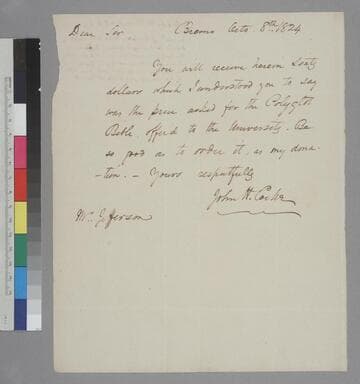 Dear Sir Bremo Octo. 8th. 1824
You will receive herein Sixty
dollars which I understood you to say
was the price asked for the Polyglot
Bible offerd to the University. Be
so good as to order it, as my dona
-tion. — Yours respectfully
John H. Cocke
Mr. Jefferson